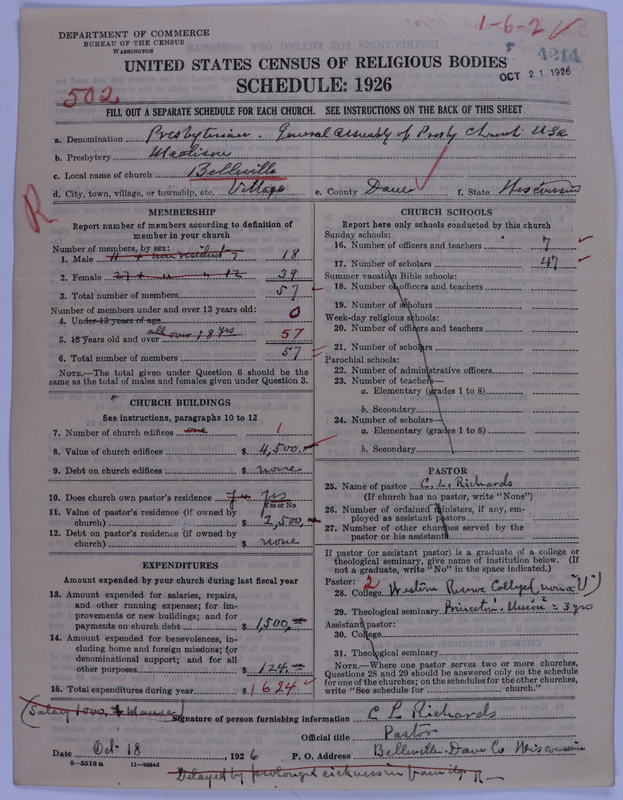 DEPARTMENT OF COMMERCE
BUREAU OF THE CENSUS
WASHINGTON
1-6-2
4214
UNITED STATES CENSUS OF RELIGIOUS BODIES
OCT 21 1926
SCHEDULE: 1926
502
FILL OUT A SEPARATE SCHEDULE FOR EACH CHURCH. SEE INSTRUCTIONS ON THE BACK OF THIS SHEET
a. Denomination Presbyterian. General Assembly of Presby Church USA
b. Presbytery Madison
c. Local name of church Belleville
d. City, town, village, or township, etc. Village e. County Dane f. State Wisconsin
R
MEMBERSHIP
Report number of members according to definition of member in your church
Number of members, by sex:
1. Male 11 + non resident 7 18
2. Female 27 + " " 12 39
3. Total number of members 57
Number of members under and over 13 years old:
4. Under 13 years of age 0
5. 13 years old and over all over 18 yrs 57
6. Total number of members 57
NOTE.—The total given under Question 6 should be the same as the total of males and females given under Question 3.
CHURCH BUILDINGS
See instructions, paragraphs 10 to 12
7. Number of church edifices one 1
8. Value of church edifices $ 4,500.
9. Debt on church edifices $ none
10. Does church own pastor's residence yes Yes
Yes or No
11. Value of pastor's residence (if owned by church) $ 2,500,
12. Debt on pastor's residence (if owned by church) $ none
EXPENDITURES
Amount expended by your church during last fiscal year
13. Amount expended for salaries, repairs, and other running expenses; for improvements or new buildings; and for payments on church debt $ 1,500,
14. Amount expended for benevolences, including home and foreign missions; for denominational support; and for all other purposes $ 124.
15. Total expenditures during year $ 1624
CHURCH SCHOOLS
Report here only schools conducted by this church
Sunday schools:
16. Number of officers and teachers 7
17. Number of scholars 47
Summer vacation Bible schools:
18. Number of officers and teachers
19. Number of scholars
Week-day religious schools:
20. Number of officers and teachers
21. Number of scholars
Parochial schools:
22. Number of administrative officers
23. Number of teachers—
a. Elementary (grades 1 to 8)
b. Secondary
24. Number of scholars—
a. Elementary (grades 1 to 8)
b. Secondary
PASTOR
25. Name of pastor C. L. Richards
(If church has no pastor, write "None")
26. Number of ordained ministers, if any, employed as assistant pastors
27. Number of other churches served by the pastor or his assistant
If pastor (or assistant pastor) is a graduate of a college or theological seminary, give name of institution below. (If not a graduate, write "No" in the space indicated.)
Pastor: 2
28. College Western Reserve College (now a "U")
29. Theological seminary Princeton + Union = 3 yrs
Assistant pastor:
30. College
31. Theological seminary
NOTE.—Where one pastor serves two or more churches, Questions 28 and 29 should be answered only on the schedule for one of the churches; on the schedules for the other churches, write "See schedule for church."
(Salary 1000. + Manse)
Signature of person furnishing information C L Richards
Official title Pastor
Date Oct 18, 1926 P. O. Address Belleville Dane Co Wisconsin
8-5518a 11-9084d
Delayed by prolonged sickness in family R—